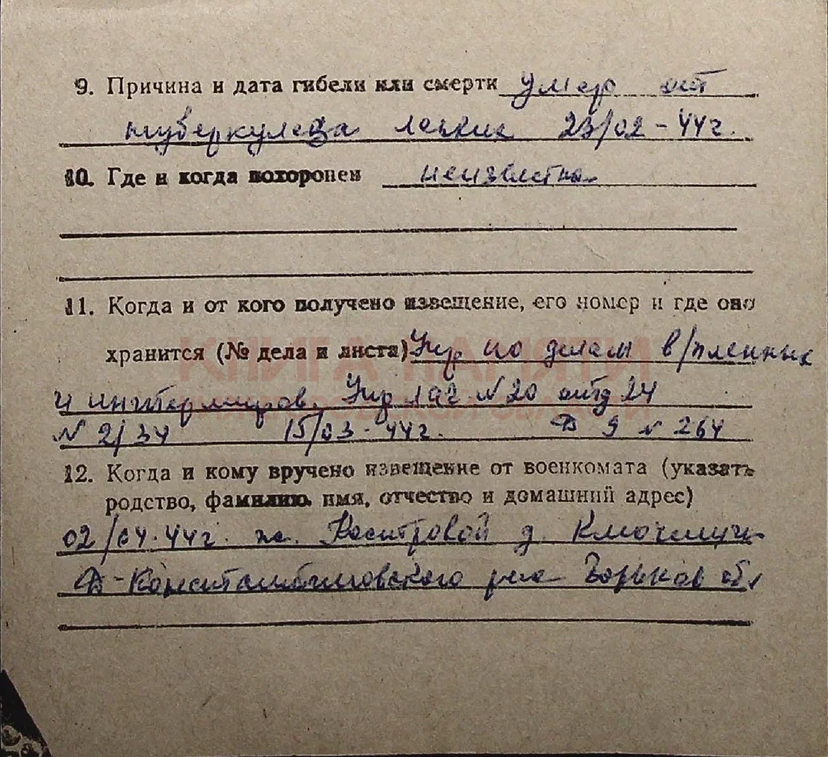 9. Причина и дата гибели или смерти умер от
туберкулеза легких 23/02-44г.
10. Где и когда похоронен неизвестно
11. Когда и от кого получено извещение, его номер и где оно
хранится (№ дела и листа) Упр по делам в/пленных
и интерниров. Упр лаг N 20 отд 24
N 2/34 15/03-44г. Д 9 л 264
12. Когда и кому вручено извещение от военкомата (указать
родство, фамилию, имя, отчество и домашний адрес)
02/04-44г. ж. д.
Д-Константиновского р-на Горьков обл
КНИГА ПАМЯТИ